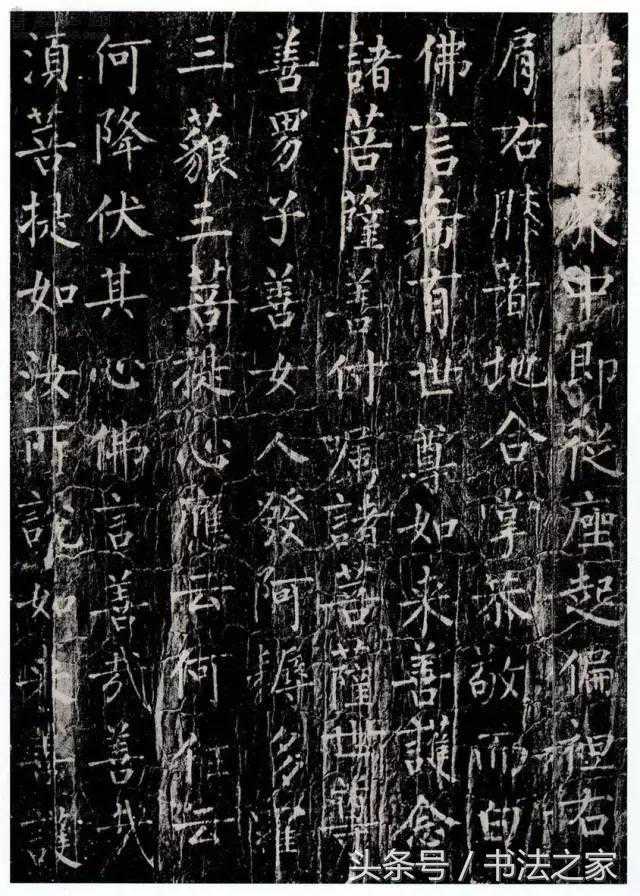 在大衆中即從座起偏袒右
肩右膝著地合掌恭敬而白
佛言希有世尊如来善護念
諸菩薩善付囑諸菩薩世尊
善男子善女人發阿耨多羅
三藐三菩提心應云何住云
何降伏其心佛言善哉善哉
須菩提如汝所說如来善護
头条号 / 书法之家